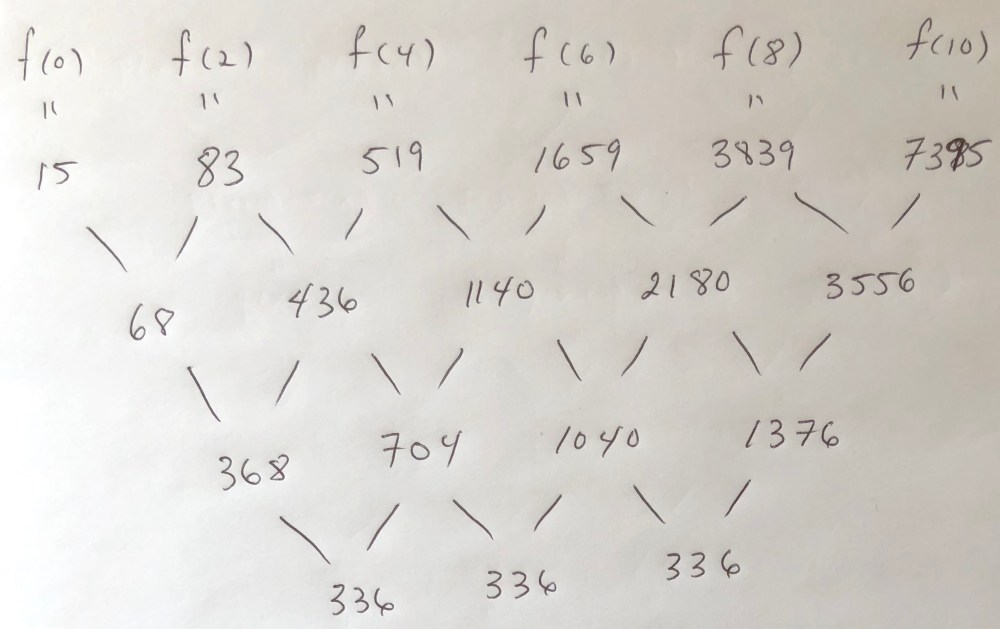 f(0) f(2) f(4) f(6) f(8) f(10)
" " " " " "
15 83 519 1659 3839 7395
68 436 1140 2180 3556
368 704 1040 1376
336 336 336